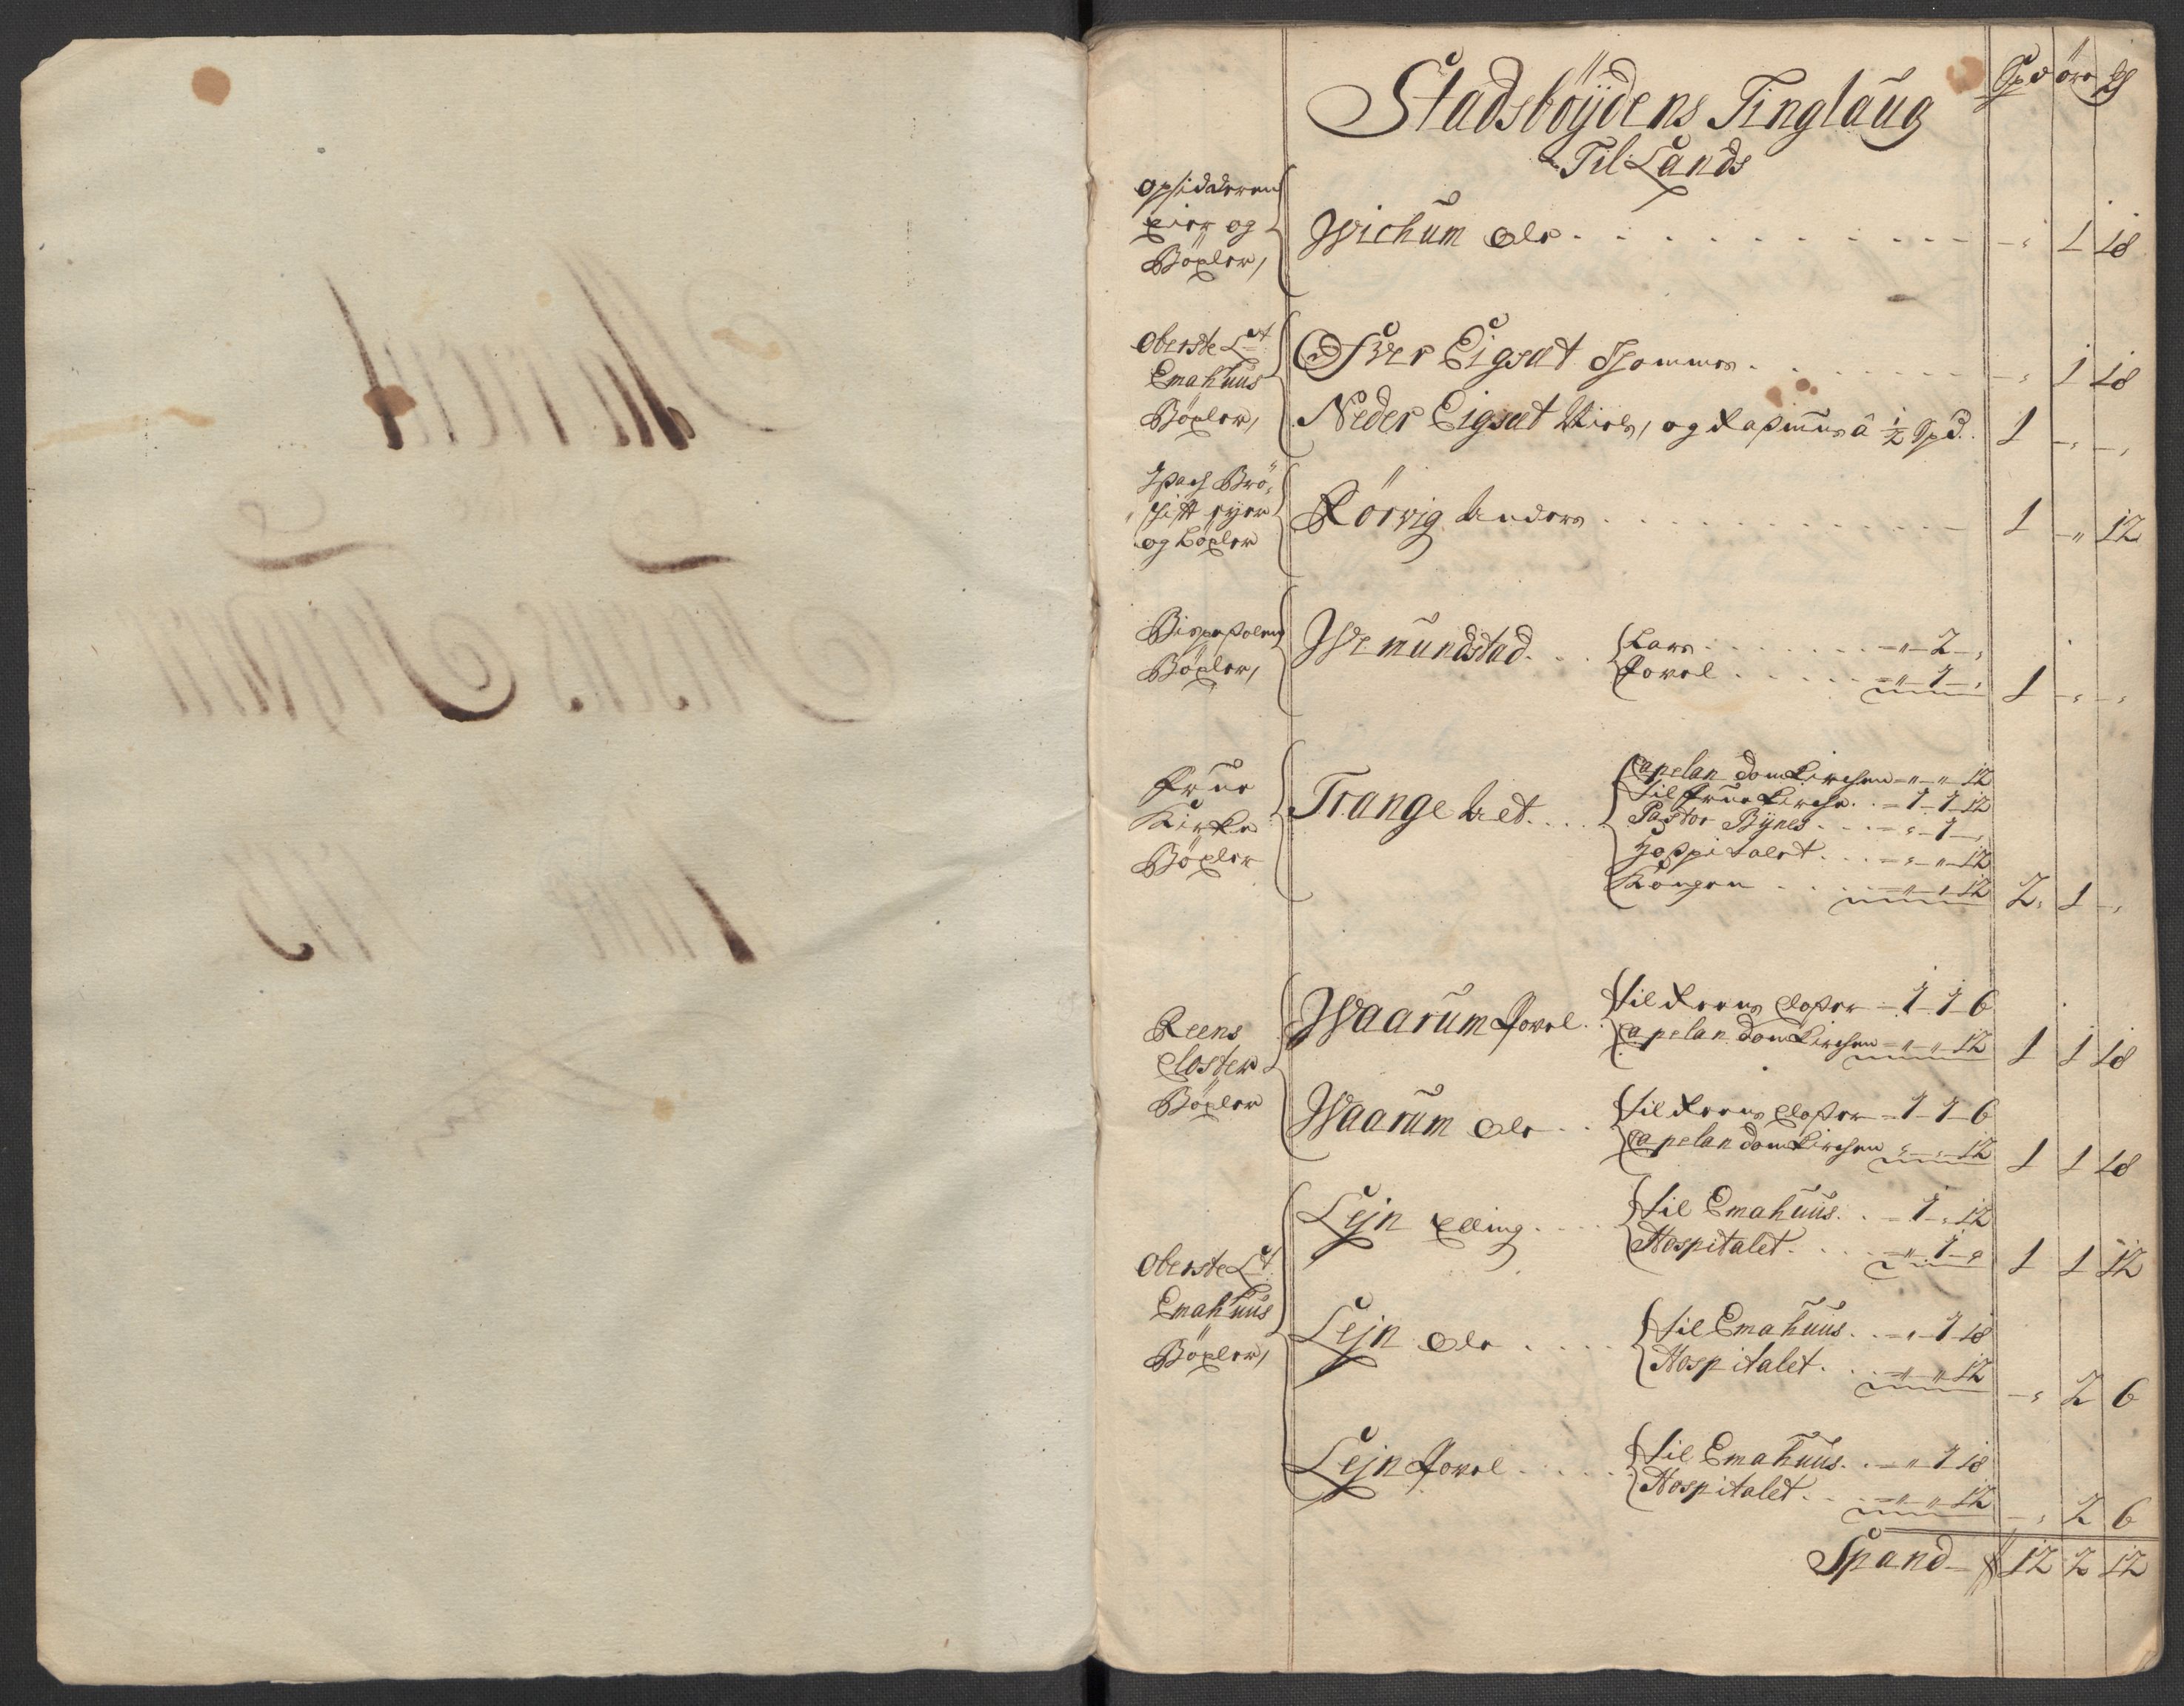 Stadsböÿdens Tinglaug
Til Lands
Spd öre mrl
Opsidderen
Eier og
Böxler,
Wichum Ole - " 1 18
Oberste Lt
Emahuus
Böxler,
Ofwer Eigsæt Thommes - " 1 18
Neder Eigsæt Niels, og Rasmus â 1/2 Spd. 1 - " - "
og Böxler
Rörvig Anders 1 - " 12
Böxler,
Wemundstad Lars - " - 2 - "
Povel - " - 1 - " 1 - " - "
Frue
Kirke
Böxler
Trangelæt Capelan Domkirchen - " - " 12
Til Frue Kirche - 1 - 1 - 12
Pastor Bÿnes - " - 1 - "
Hospitalet - " - " - 12
Kongen - " - " 12 2 " 1 - "
Reens
Closter
Böxler
Waarum Povel Til Reens Closter - 1 - 1 - 6
Capelan Domkirchen - " - " 12 1 1 18
Waarum Ole Til Reens Closter - 1 - 1 - 6
Capelan Domkirchen " - " - 12 1 1 18
Oberste Lt
Emahuus
Böxler,
Lejn Elling Til Emahuus - 1 - " 12
Hospitalet - " - 1 - " 1 1 12
Lejn Ole Til Emahuus - " - 1 - 18
Hospitalet - " - " 12 - " 2 6
Lejn Povel Til Emahuus - " 1 18
Hospitalet - " - " 12 - " 2 6
Spand - 12 2 12